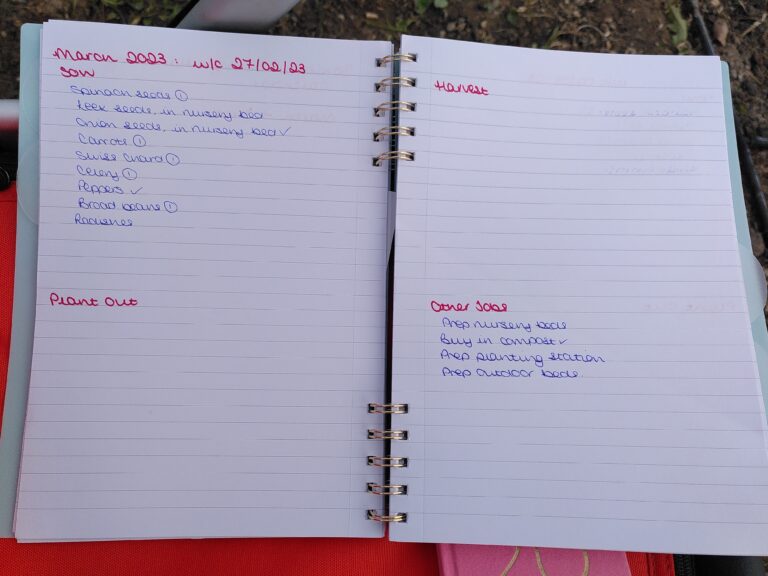 March 2023: w/c 27/02/23
Sow
Spinach seeds ①
Leek seeds, in nursery bed
Onion seeds, in nursery bed ✓
Carrots ①
Swiss Chard ①
Celery ①
Peppers ✓
Broad beans ①
Radishes
Plant Out
Harvest
Other Jobs
Prep nursery beds
Buy in compost ✓
Prep planting station
Prep outdoor beds